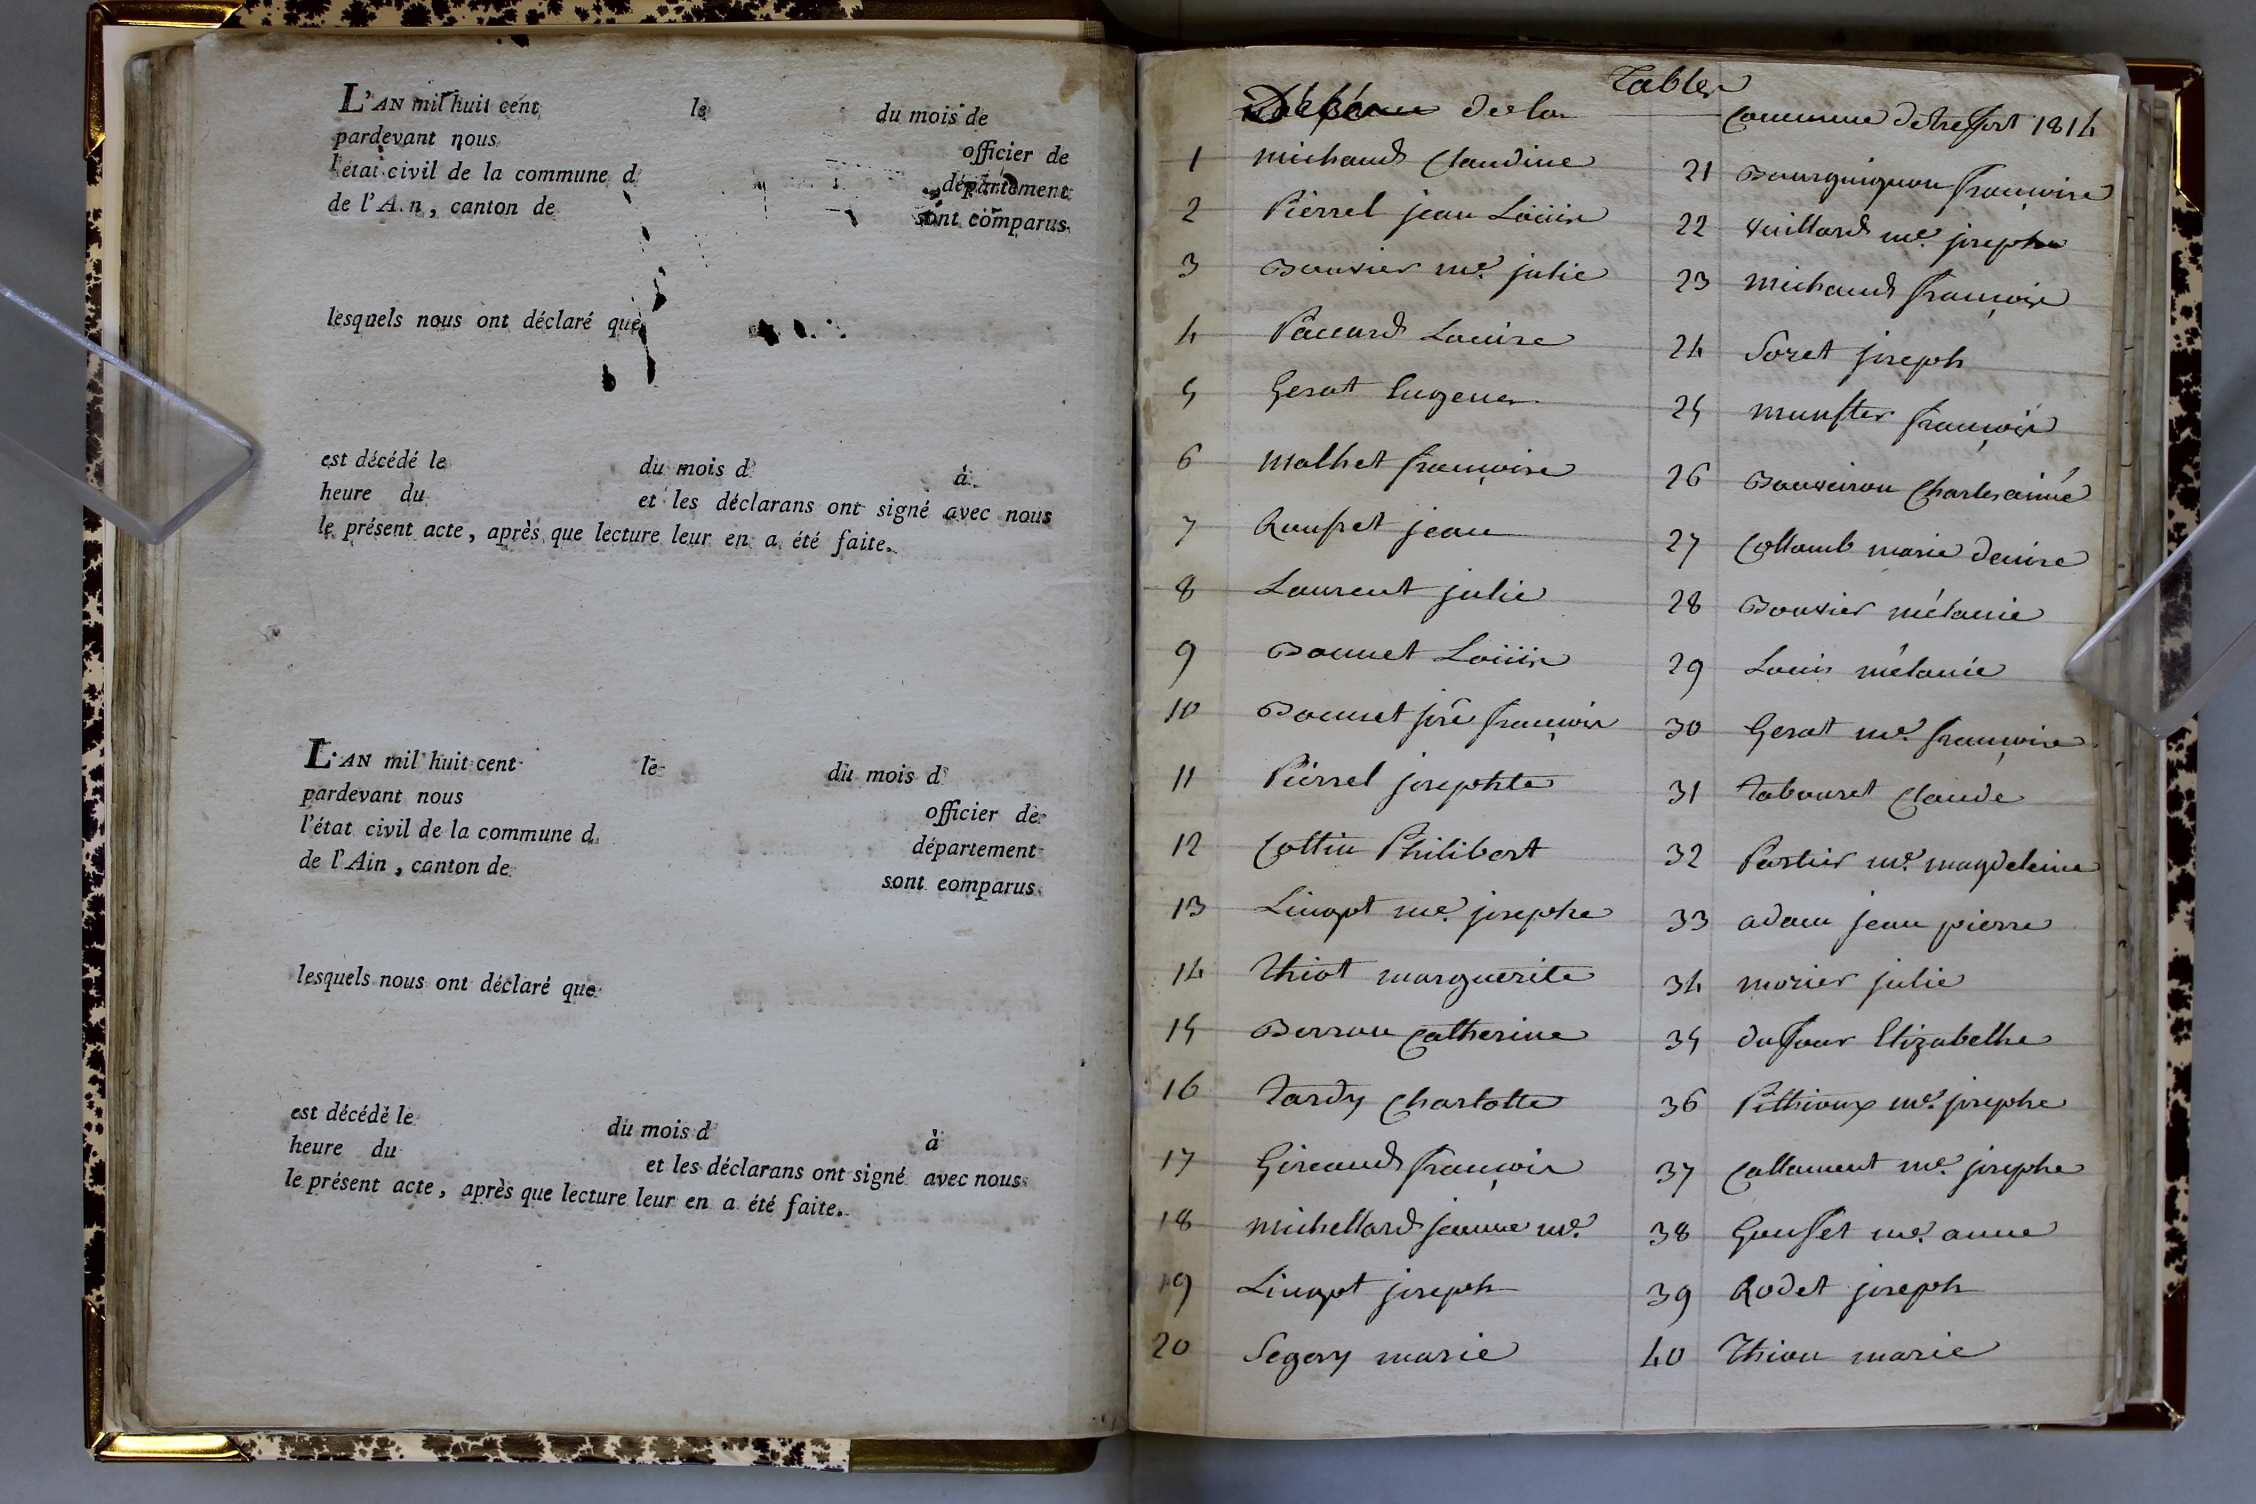 L'AN mil huit cent le du mois de
pardevant nous officier de
l'état civil de la commune d département
de l'A.n, canton de sont comparus
lesquels nous ont déclaré que
est décédé le du mois d à
heure du et les déclarans ont signé avec nous
le présent acte, après que lecture leur en a été faite.
L'AN mil huit cent le du mois d
pardevant nous officier de
l'état civil de la commune d département
de l'Ain, canton de sont comparus
lesquels nous ont déclaré que
est décédé le du mois d à
heure du et les déclarans ont signé avec nous
le présent acte, après que lecture leur en a été faite.
Tables
de la commune de treffort 1814
1 michaud Claudine
2 Pierrel jean Loüis
3 Bouvier me. julie
4 Paccard Louise
5 Gerat Eugene
6 Mathet françoise
7 Ronfret jean
8 Laurent julie
9 Bonnet Loüis
10 Bonnet jph françois
11 Pierrel josephte
12 Cottin Philibert
13 Lingot me. josephe
14 Thiot marguerite
15 Borron Catherine
16 Tardy Charlotte
17 Gireaud françois
18 michellard jeanne me.
19 Lingot joseph
20 Segery marie
21 Bourguignon françoise
22 Vuillard me. josephe
23 michaud françoise
24 Soret joseph
25 munster françois
26 Bouveiron Charles aimé
27 Collomb marie denise
28 Bouvier mélanie
29 Louis mélanie
30 Gerat me. françoise
31 Tabouret Claude
32 Partier me. magdeleine
33 adam jean pierre
34 morier julie
35 dufour Elizabethe
36 Pethioux me. josephe
37 Callament me. josephe
38 Gouffet me. anne
39 Rodet joseph
40 Thion marie